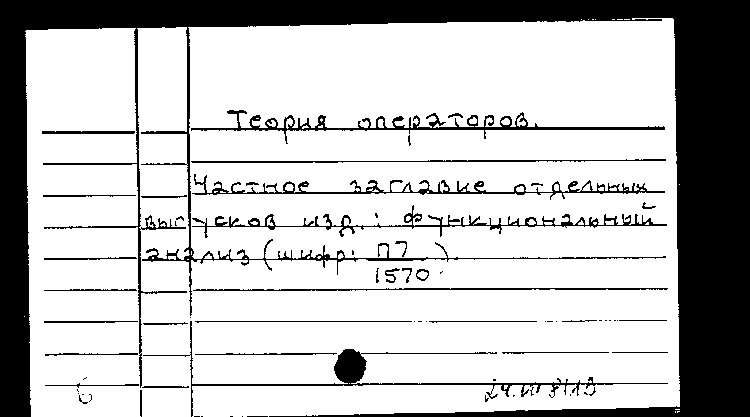 Теория операторов.
Частное заглавие отдельных
выпусков изд.: функциональный
анализ (шифр: П7/1570).
6